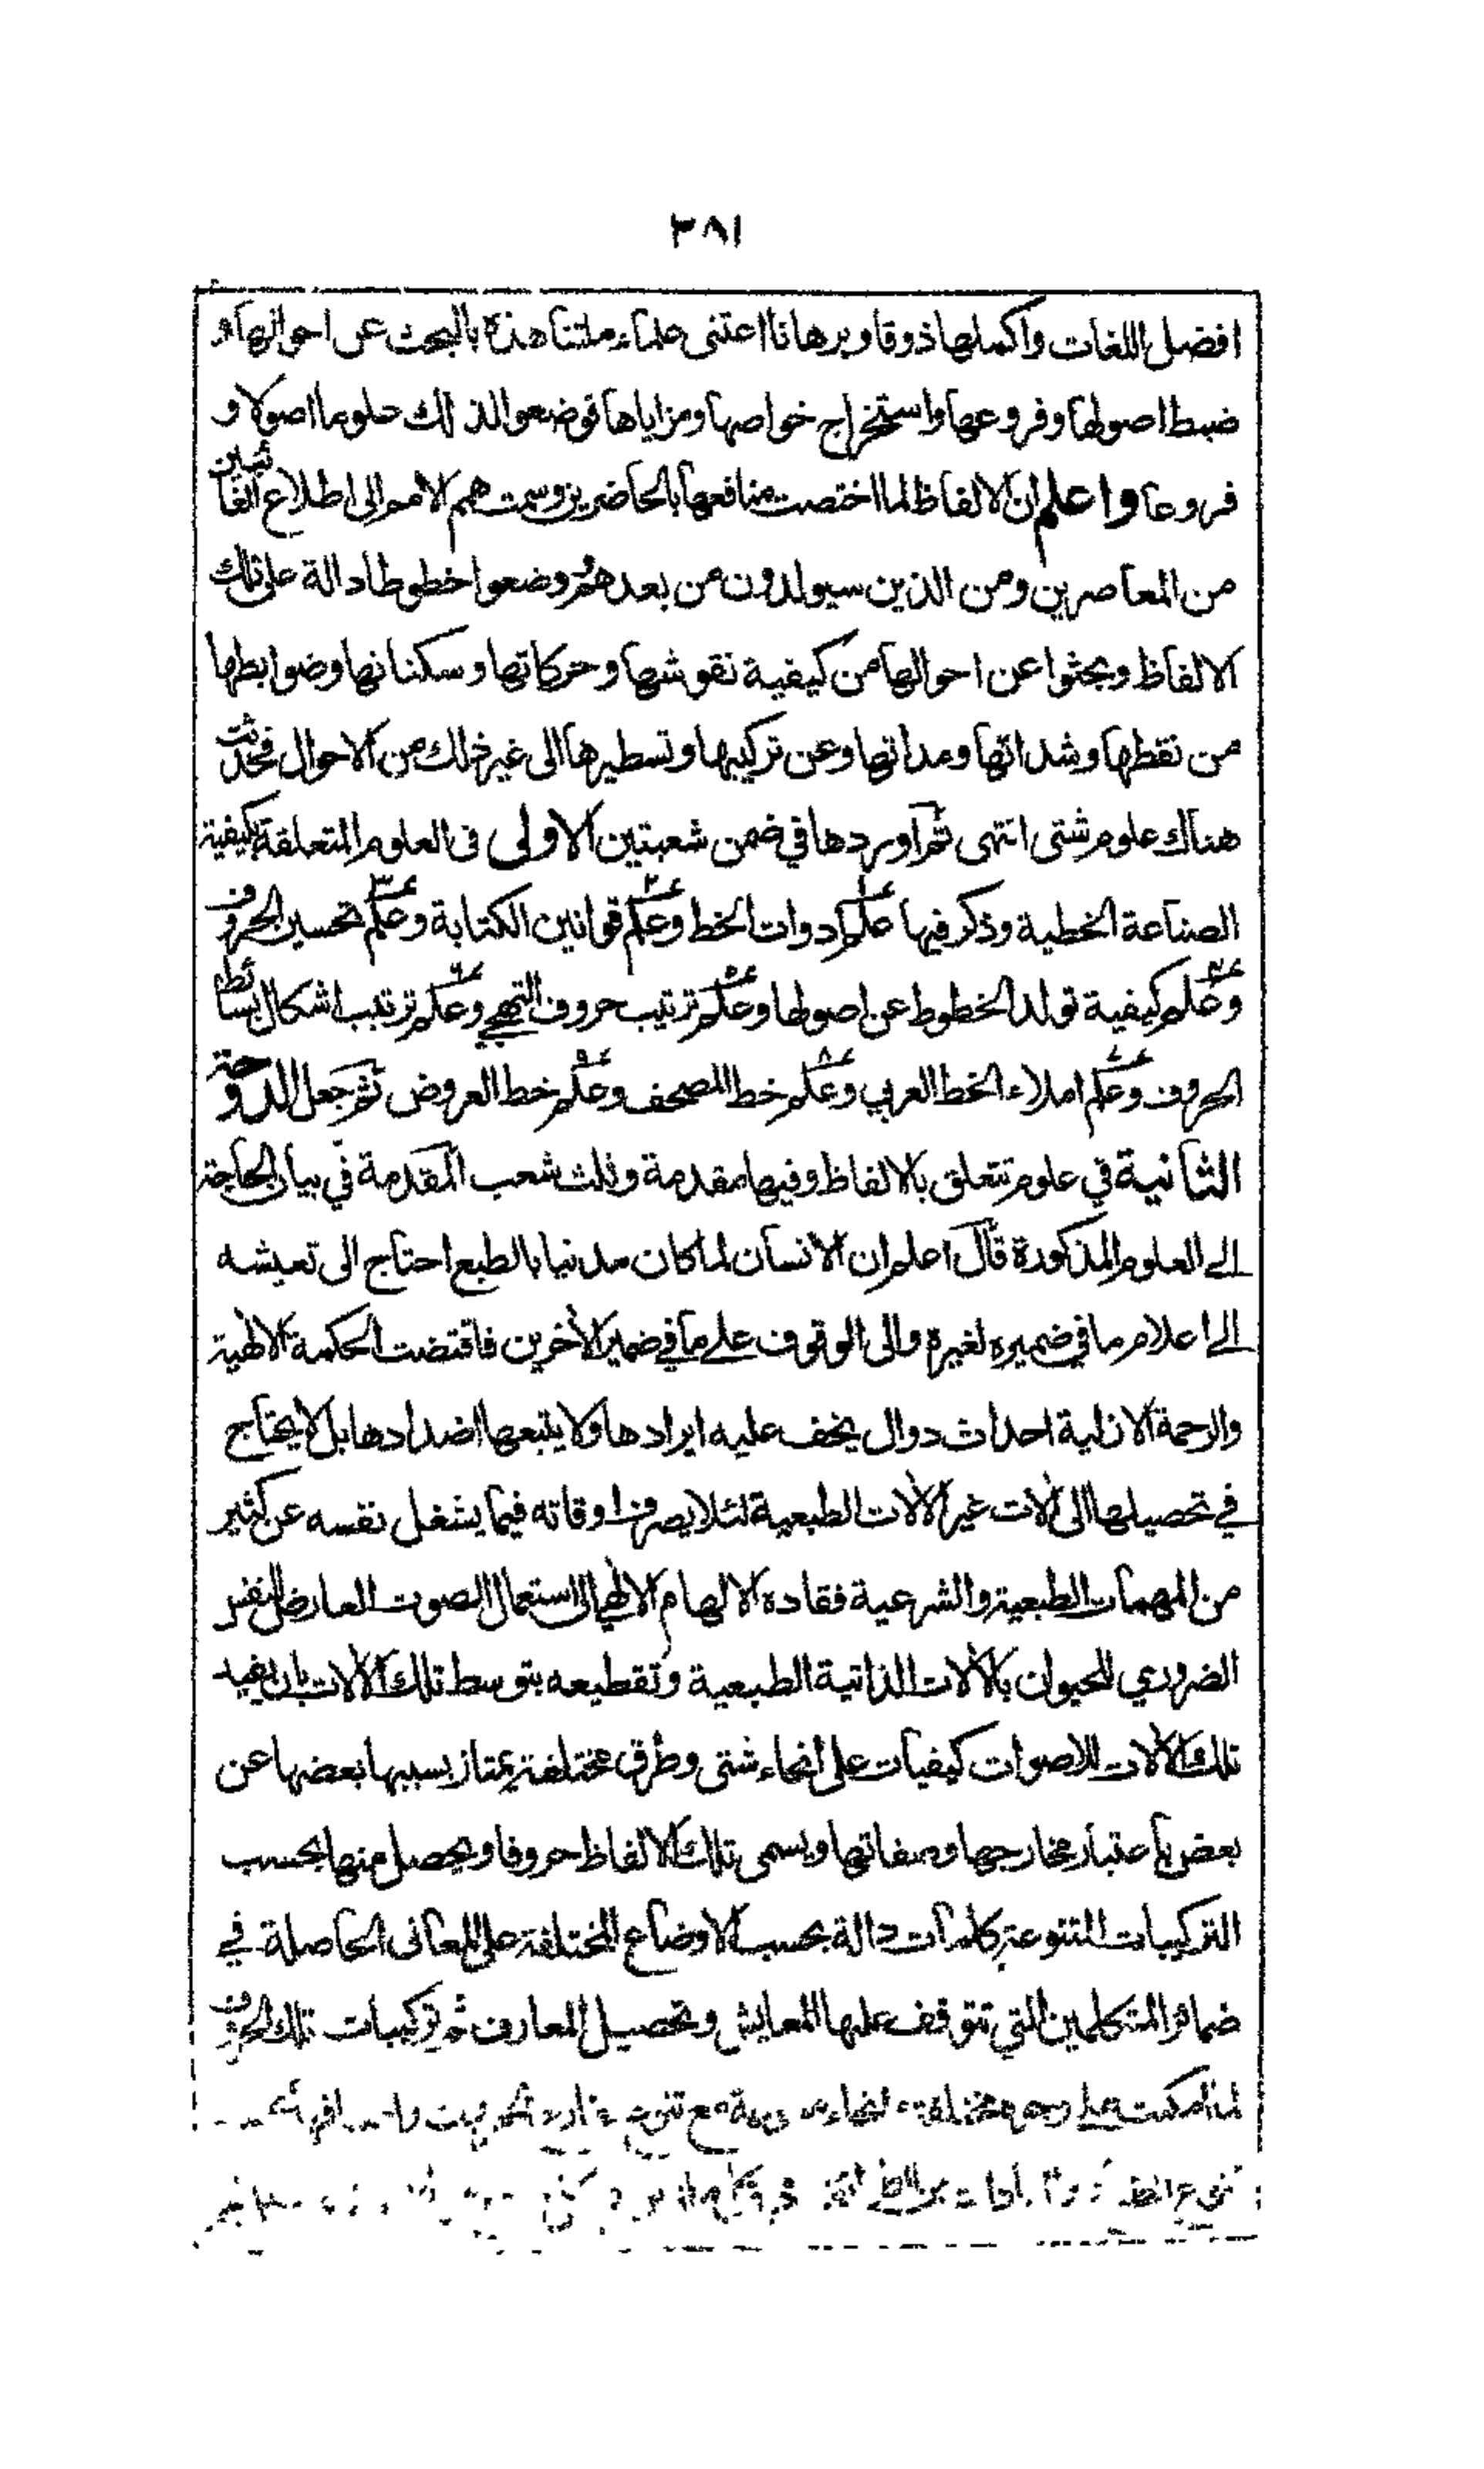 ٣٨١
افضل اللغات واكملها ذوقا وبرهانا اعتنى علماء ملتنا هذه بالبحث عن احوالها و
ضبط اصولها وفروعها واستخراج خواصها ومزاياها فوضعوا لذلك علوما اصولا و
فروعا واعلم ان الالفاظ لما اختصت منافعها بالحاضرين وسمت همم الامم الى اطلاع الغائبين
من المعاصرين ومن الذين سيولدون من بعدهم وضعوا خطوطا دالة على تلك
الالفاظ وبحثوا عن احوالها من كيفية نقوشها وحركاتها وسكناتها وضوابطها
من نقطها وشداتها ومداتها وعن تركيبها وتسطيرها الى غير ذلك من الاحوال فحدثت
هناك علوم شتى انتهى ثم اوردها في ضمن شعبتين الاولى فى العلوم المتعلقة بكيفية
الصناعة الخطية وذكر فيها علم ادوات الخط وعلم قوانين الكتابة وعلم تحسين الحروف
وعلم كيفية تولد الخطوط عن اصولها وعلم ترتيب حروف التهجي وعلم ترتيب اشكال بسائط
الحروف وعلم املاء الخط العربي وعلم خط المصحف وعلم خط العروض ثم جعل الدوحة
الثانية في علوم تتعلق بالالفاظ وفيها مقدمة وثلث شعب المقدمة في بيان الحاجة
الى العلوم المذكورة قال اعلم ان الانسان لما كان مدنيا بالطبع احتاج الى تعيشه
الى اعلام ما في ضميره لغيره والى الوقوف على ما في ضمير الأخرين فاقتضت الحكمة الالهية
والرحمة الازلية احداث دوال يخف عليه ايرادها ولا يتبعها اضدادها بل لا يحتاج
في تحصيلها الى ألات غير الألات الطبعية لئلا يصرف اوقاته فيما يشغل نفسه عن كثير
من المهمات الطبعية والشرعية فقاده الالهام الالهي الى استعمال الصوت العارض للنفس
الضروري للحيوان بالألات الذاتية الطبيعية وتقطيعه بتوسط تلك الألات بان يفيد
تلك الألات للاصوات كيفيات على انحاء شتى وطرق مختلفة يمتاز بسببها بعضها عن
بعض باعتبار مخارجها وصفاتها ويسمى تلك الالفاظ حروفا ويحصل منها بحسب
التركيبات المتنوعة كلمات دالة بحسب الاوضاع المختلفة على المعانى الحاصلة في
ضمائر المتكلمين التي تتوقف عليها المعايش وتحصيل المعارف ثم تركيبات تلك الحروف
لما امكنت على وجوه مختلفة مع